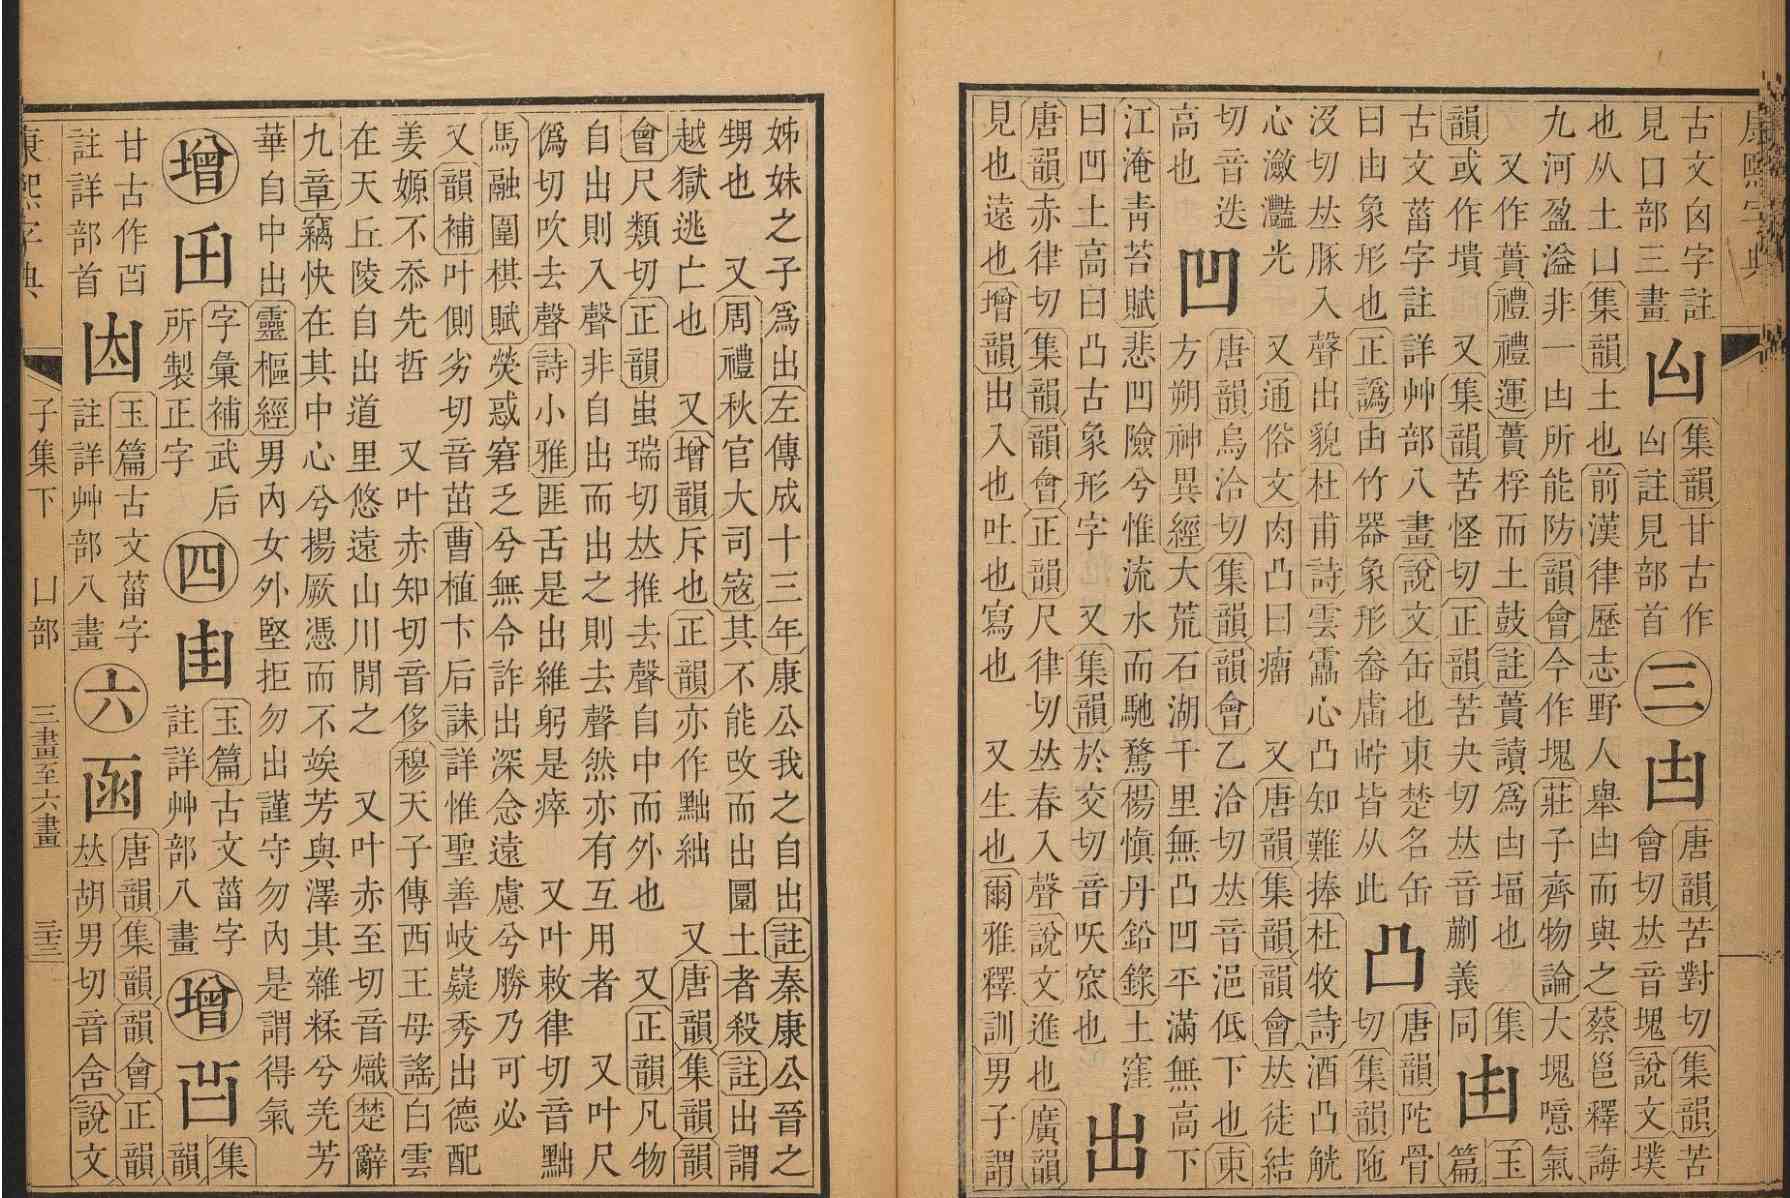 康熙字典
古文囟字註
見口部三畫
集韻甘古作
註見部首
三
凷
唐韻苦對切集韻苦
會切𠀤音塊說文墣
也从土凵集韻土也前漢律歷志野人舉凷而與之蔡邕釋誨
九河盈溢非一凷所能防韻會今作塊莊子齊物論大塊噫氣
又作蕢禮禮運蕢桴而土鼓註蕢讀爲凷堛也
集
韻或作墤
又集韻苦怪切正韻苦夬切𠀤音蒯義同
玉
篇
古文葘字註詳艸部八畫說文缶也東楚名缶
曰甶象形也正譌甶竹器象形畚𤰇𤰈皆从此
凸
唐韻陀骨
切集韻陁
沒切𠀤豚入聲出貌杜甫詩雲霝心凸知難捧杜牧詩酒凸觥
心瀲灩光
又通俗文肉凸曰瘤
又唐韻集韻韻會𠀤徒結
切音迭
高也
凹
唐韻烏洽切集韻韻會乙洽切𠀤音浥低下也東
方朔神異經大荒石湖千里無凸凹平滿無高下
江淹靑苔賦悲凹險兮惟流水而馳騖楊愼丹鉛錄土窪
曰凹土高曰凸古象形字
又集韻於交切音㕭窊也
出
唐韻赤律切集韻韻會正韻尺律切𠀤春入聲說文進也廣韻
見也遠也增韻出入也吐也寫也
又生也爾雅釋訓男子謂
姊妹之子爲出左傳成十三年康公我之自出註秦康公晉之
甥也
又周禮秋官大司寇其不能改而出圜土者殺註出謂
越獄逃亡也
又增韻斥也正韻亦作黜絀
又唐韻集韻韻
會尺類切正韻蚩瑞切𠀤推去聲自中而外也
又正韻凡物
自出則入聲非自出而出之則去聲然亦有互用者
又叶尺
僞切吹去聲詩小雅匪舌是出維躬是瘁
又叶敕律切音黜
馬融圍棋賦熒惑窘乏兮無令詐出深念遠慮兮勝乃可必
又韻補叶側劣切音茁曹植卞后誄詳惟聖善岐嶷秀出德配
姜嫄不忝先哲
又叶赤知切音侈穆天子傳西王母謠白雲
在天丘陵自出道里悠遠山川閒之
又叶赤至切音熾楚辭
九章竊快在其中心兮揚厥憑而不竢芳與澤其雜糅兮羌芳
華自中出靈樞經男內女外堅拒勿出謹守勿內是謂得氣
增
字彙補武后
所製正字
四
玉篇古文葘字
註詳艸部八畫
增
集
韻
甘古作
註詳部首
玉篇古文葘字
註詳艸部八畫
六
函
唐韻集韻韻會正韻
𠀤胡男切音含說文
康熙字典
子集下
凵部
三畫至六畫
三十三